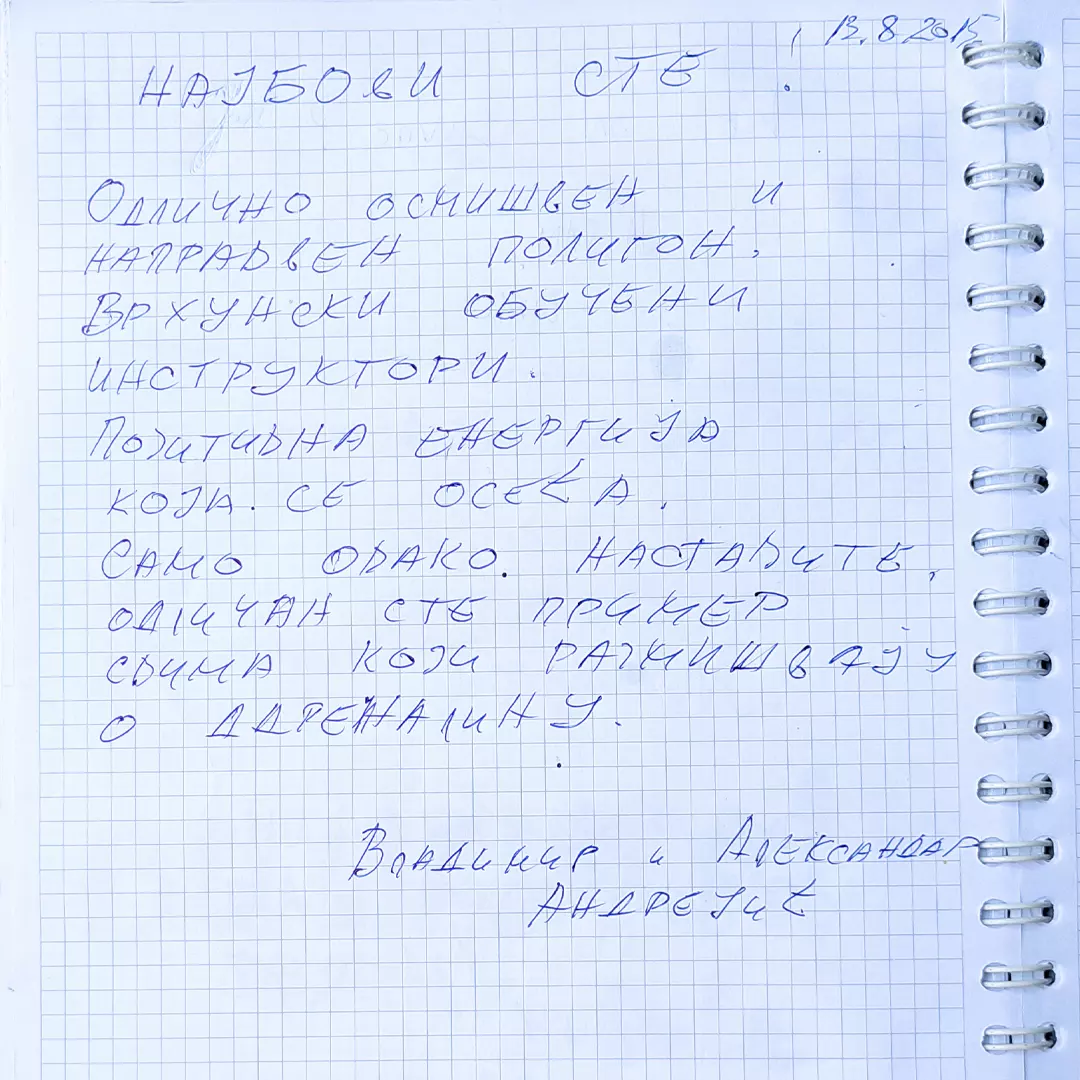 13.8.2015
НАЈБОљИ СТЕ !
Одлично осмишљен и
направљен полигон,
Врхунски обучени
инструктори.
Позитивна енергија
која се осећа.
Само овако. наставите,
одличан сте пример
свима који размишљају
о адреналину.
Владимир и Александар
Андрејић